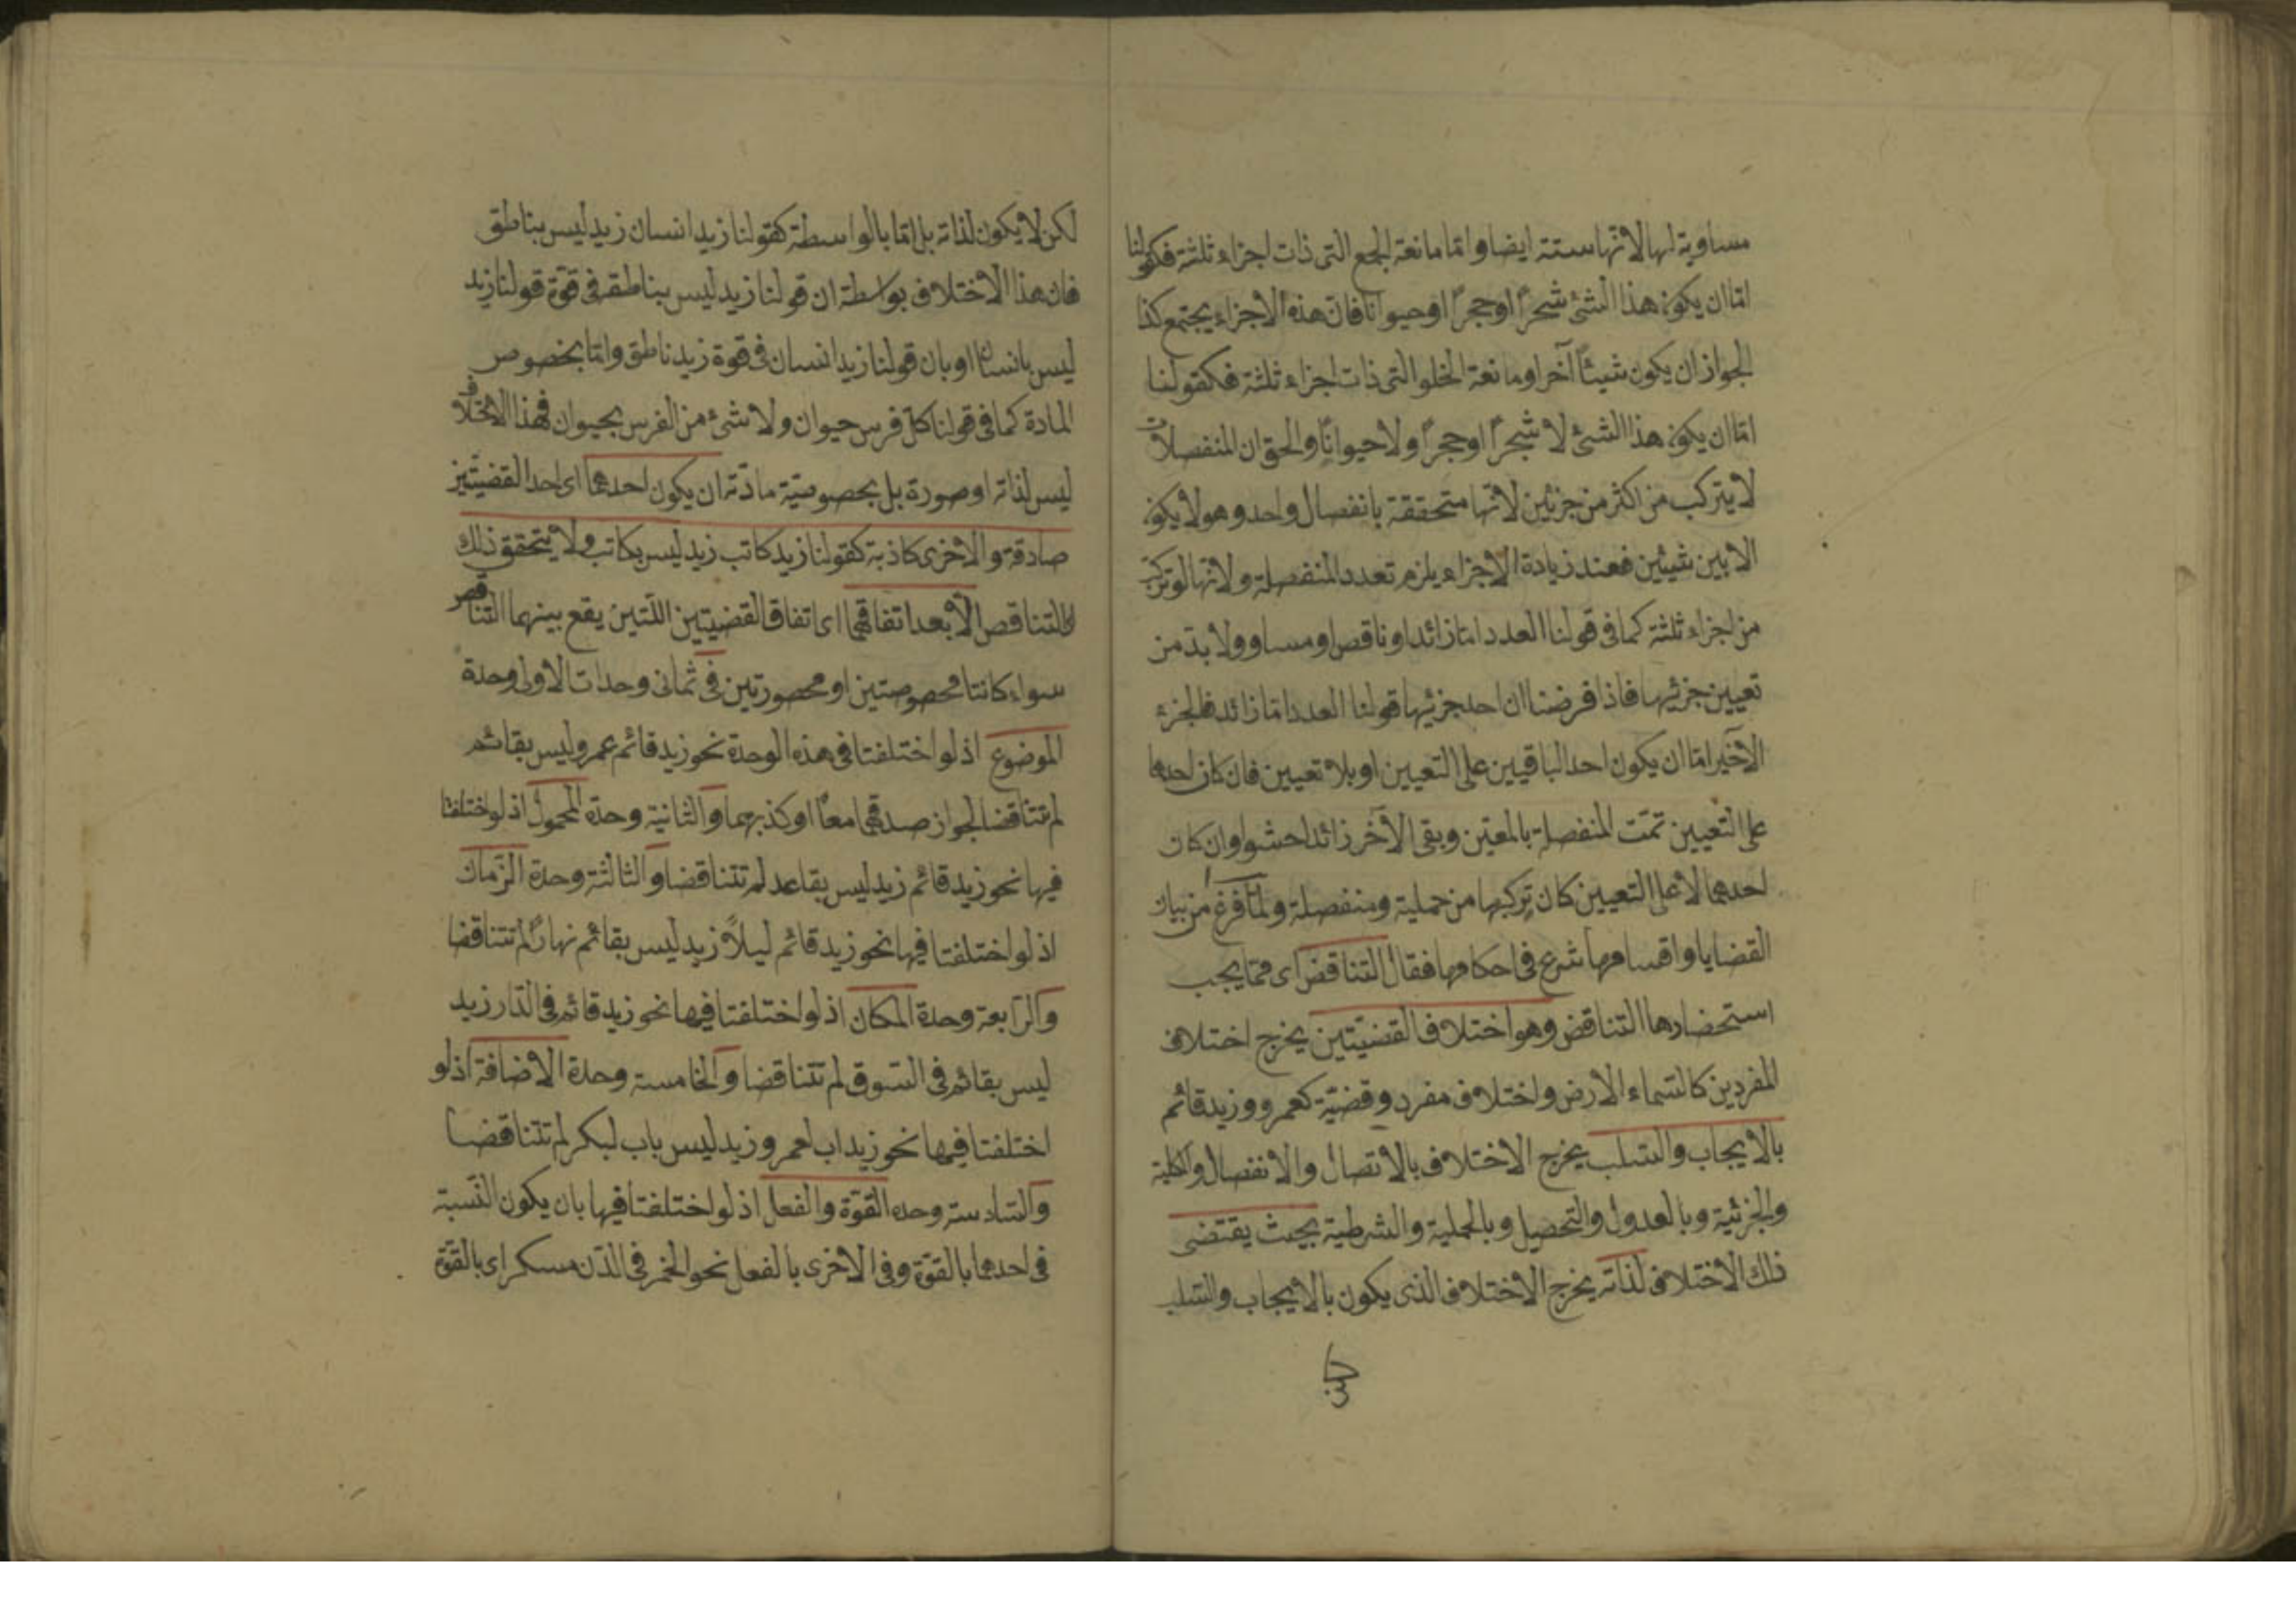 مساوية لها لانها ستة ايضا واما مانعة الجمع التى ذات اجزاء ثلثة فكقولنا
اما ان يكون هذا الشئ شجرًا او حجرًا او حيوانا فان هذه الاجزاء يجتمع كذا
لجواز ان يكون شيئًا آخر او مانعة الخلو التى ذات اجزاء ثلثة فكقولنا
اما ان يكون هذا الشئ لا شجرًا او حجرًا ولا حيوانًا والحق ان المنفصلات
لا يتركب من اكثر من جزئين لانها متحققة بانفصال واحد وهو لا يكون
الا بين شيئين فعند زيادة الاجزاء يلزم تعدد المنفصلة ولانها لو تركب
من اجزاء ثلثة كما فى قولنا العدد اما زائد او ناقص او مساو ولا بد من
تعيين جزئيها فاذا فرضنا ان احد جزئيها قولنا العدد اما زائد فالجزء
الآخير اما ان يكون احد الباقيين على التعيين او بلا تعيين فان كان احدهما
على التعيين تمت المنفصلة بالمعيّن وبقى الآخر زائدا حشوا وان كان
احدهما لا على التعيين كان تركبها من حملية ومنفصلة ولما فرغ من بيان
القضايا واقسامها شرع فى احكامها فقال التناقض اى مما يجب
استحضارها التناقض وهو اختلاف القضيّتين يخرج اختلاف
المفردين كالسماء الارض واختلاف مفرد وقضيّة كعمرو وزيد قائم
بالايجاب والسلب يخرج الاختلاف بالاتصال والانفصال والكلية
والجزئية وبالعدول والتحصيل وبالحملية والشرطية بحيث يقتضى
ذلك الاختلاف لذاته يخرج الاختلاف الذى يكون بالايجاب والسلب
لكن
لكن لا يكون لذاته بل اما بالواسطة كقولنا زيد انسان زيد ليس بناطق
فان هذا الاختلاف بواسطة ان قولنا زيد ليس بناطق فى قوّة قولنا زيد
ليس بانسان او بان قولنا زيد انسان فى قوة زيد ناطق واما بخصوص
المادة كما فى قولنا كل فرس حيوان ولا شئ من الفرس بحيوان فهذا الاختلاف
ليس لذاته او صورة بل بخصوصيّة مادّته ان يكون احدهما اى احد القضيّتين
صادقة والاخرى كاذبة كقولنا زيد كاتب زيد ليس بكاتب ولا يتحقق ذلك
التناقص الا بعد اتفاقهما اى اتفاق القضيتين اللتين يقع بينهما التناقص
سواء كانتا مخصوصتين او محصورتين فى ثمانى وحدات الاولى وحدة
الموضوع اذ لو اختلفتا فى هذه الوحدة نحو زيد قائم عمرو ليس بقائم
لم تتناقضا لجواز صدقهما معًا او كذبهما والثانية وحدة المحمول اذ لو اختلفتا
فيها نحو زيد قائم زيد ليس بقاعد لم تتناقضا والثالثة وحدة الزمان
اذ لو اختلفتا فيها نحو زيد قائم ليلاً زيد ليس بقائم نهارًا لم تتناقضا
والرابعة وحدة المكان اذ لو اختلفتا فيها نحو زيد قائم فى الدار زيد
ليس بقائم فى السوق لم تتناقضا والخامسة وحدة الاضافة اذ لو
اختلفتا فيها نحو زيد اب لعمرو زيد ليس باب لبكر لم تتناقضا
والسادسة وحده القوّة والفعل اذ لو اختلفتا فيها بان يكون النسبة
فى احدهما بالقوّة وفى الاخرى بالفعل نحو الخمر فى الدن مسكر اى بالقوّة